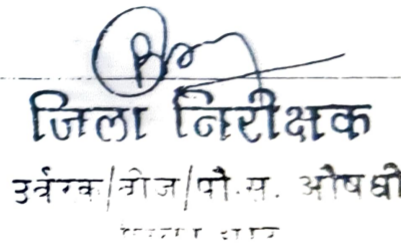 जिला निरीक्षक
उर्वरक/बीज/पौ.स. औषधी